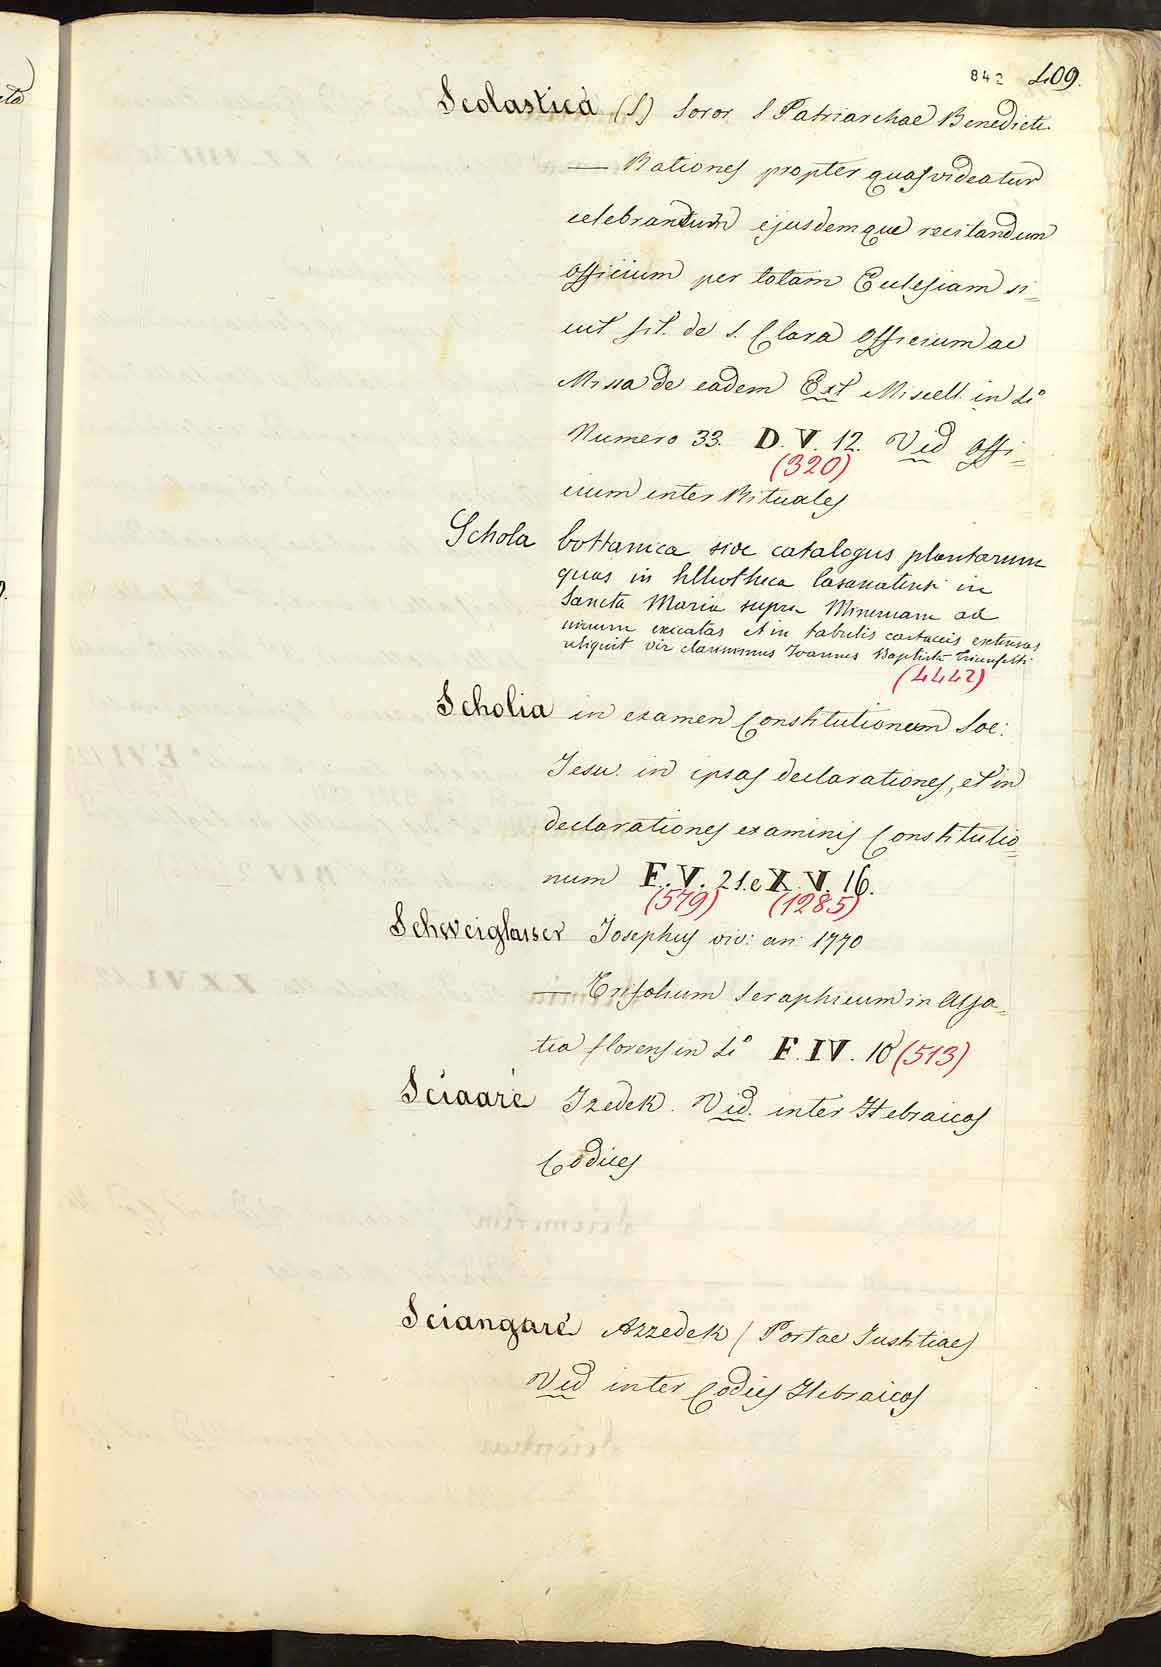 842 409.
Scolastica (S) Soror S Patriarchae Benedicti.
— Rationes propter quas videatur
celebrandum ejusdemque recitandum
Officium per totam Eclesiam si=
cut fit. de S. Clara Officium ac
Missa de eadem Ext Miscell. in Lio
Numero 33. D. V. 12. Vid Offi=
(320)
cium inter Rituales
Schola bottanica sive catalogus plantarum
quas in bibliotheca Casanatensi in
Sancta Maria supra Minervam ad
vivum exicatas et in tabulis cartaceis extensas
reliquit vir clarissimus Joannes Baptista Triumfetti
(4442)
Scholia in examen Constitutionum Soc:
Jesu. in ipsas declarationes, et in
declarationes examinis Constitutio=
num F. V. 21. e X. V. 16.
(579) (1285)
Schweiglauser Josephus viv: an: 1770
— Trifolium Seraphicum in Alsa=
tia florens in Lio F. IV. 10 (513)
Sciaarè Izedek. Vid. inter Hebraicos
Codices
Sciangarè Azzedek (Portae Justitiae)
Vid inter Codices Hebraicos